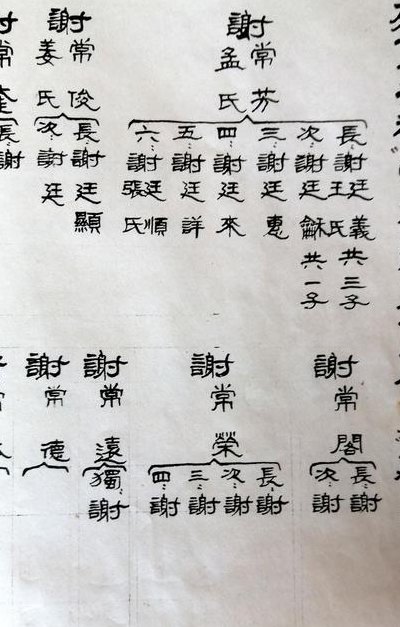 謝常芳
孟氏
長:謝廷義
王氏
共三子
次:謝廷龢
共一子
三:謝廷惠
四:謝廷來
五:謝廷詳
六:謝廷順
張氏
謝常俊
姜氏
長:謝廷顯
次:謝廷
謝常
長:謝
謝常閣
長:謝
次:謝
謝常榮
長:謝
次:謝
三:謝
四:謝
謝常遠
獨:謝
謝常德